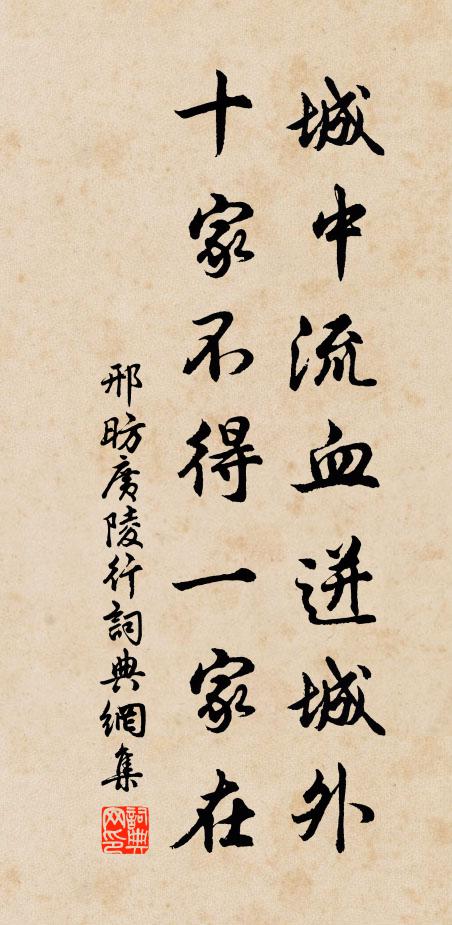 城中流血迸城外
十家不得一家在
邢昉廣陵行詞典網集
詞典網印